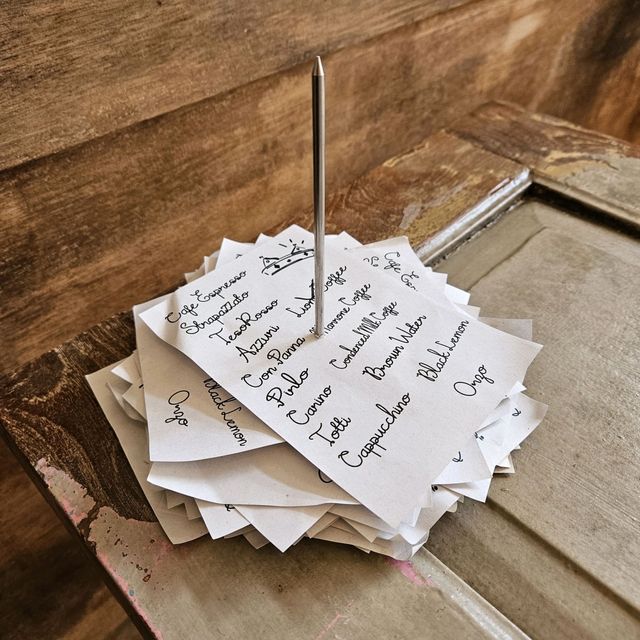 Cafe Espresso
Strapazzato
TesoRosso
Azzuni
Con Panna
Pinlo
Canino
Totti
Cappucchino
Coffee
Coffee
Condensed Milk Coffee
Brown Water
Black Lemon
Onzo
Cafe
Black Lemon
Onzo